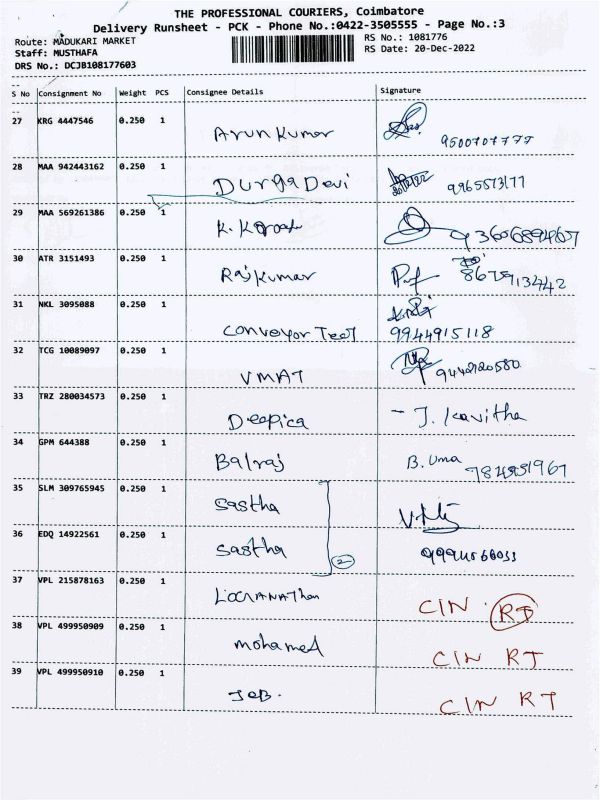 THE PROFESSIONAL COURIERS, Coimbatore
Delivery Runsheet - PCK - Phone No.:0422-3505555 - Page No.:3
Route: MADUKARI MARKET
RS No.: 1081776
Staff: MUSTHAFA
RS Date: 20-Dec-2022
DRS No.: DCJB108177603
S No Consignment No Weight PCS Consignee Details Signature
27 KRG 4447546 0.250 1
Arun Kumar 9500707777
28 MAA 942443162 0.250 1
Durga Devi
29 MAA 569261386 0.250 1
K.
30 ATR 3151493 0.250 1
Rajkumar
31 NKL 3095088 0.250 1
Conveyor Teet 9944915118
32 TCG 10089097 0.250 1
VMAT
33 TRZ 280034573 0.250 1
Deepica - J. Kavitha
34 GPM 644388 0.250 1
Balraj B. Uma
35 SLM 309765945 0.250 1
Sastha
36 EDQ 14922561 0.250 1
Sastha 2
37 VPL 215878163 0.250 1
CIN RT
38 VPL 499950909 0.250 1
mohamed CIN RT
39 VPL 499950910 0.250 1
CIN RT